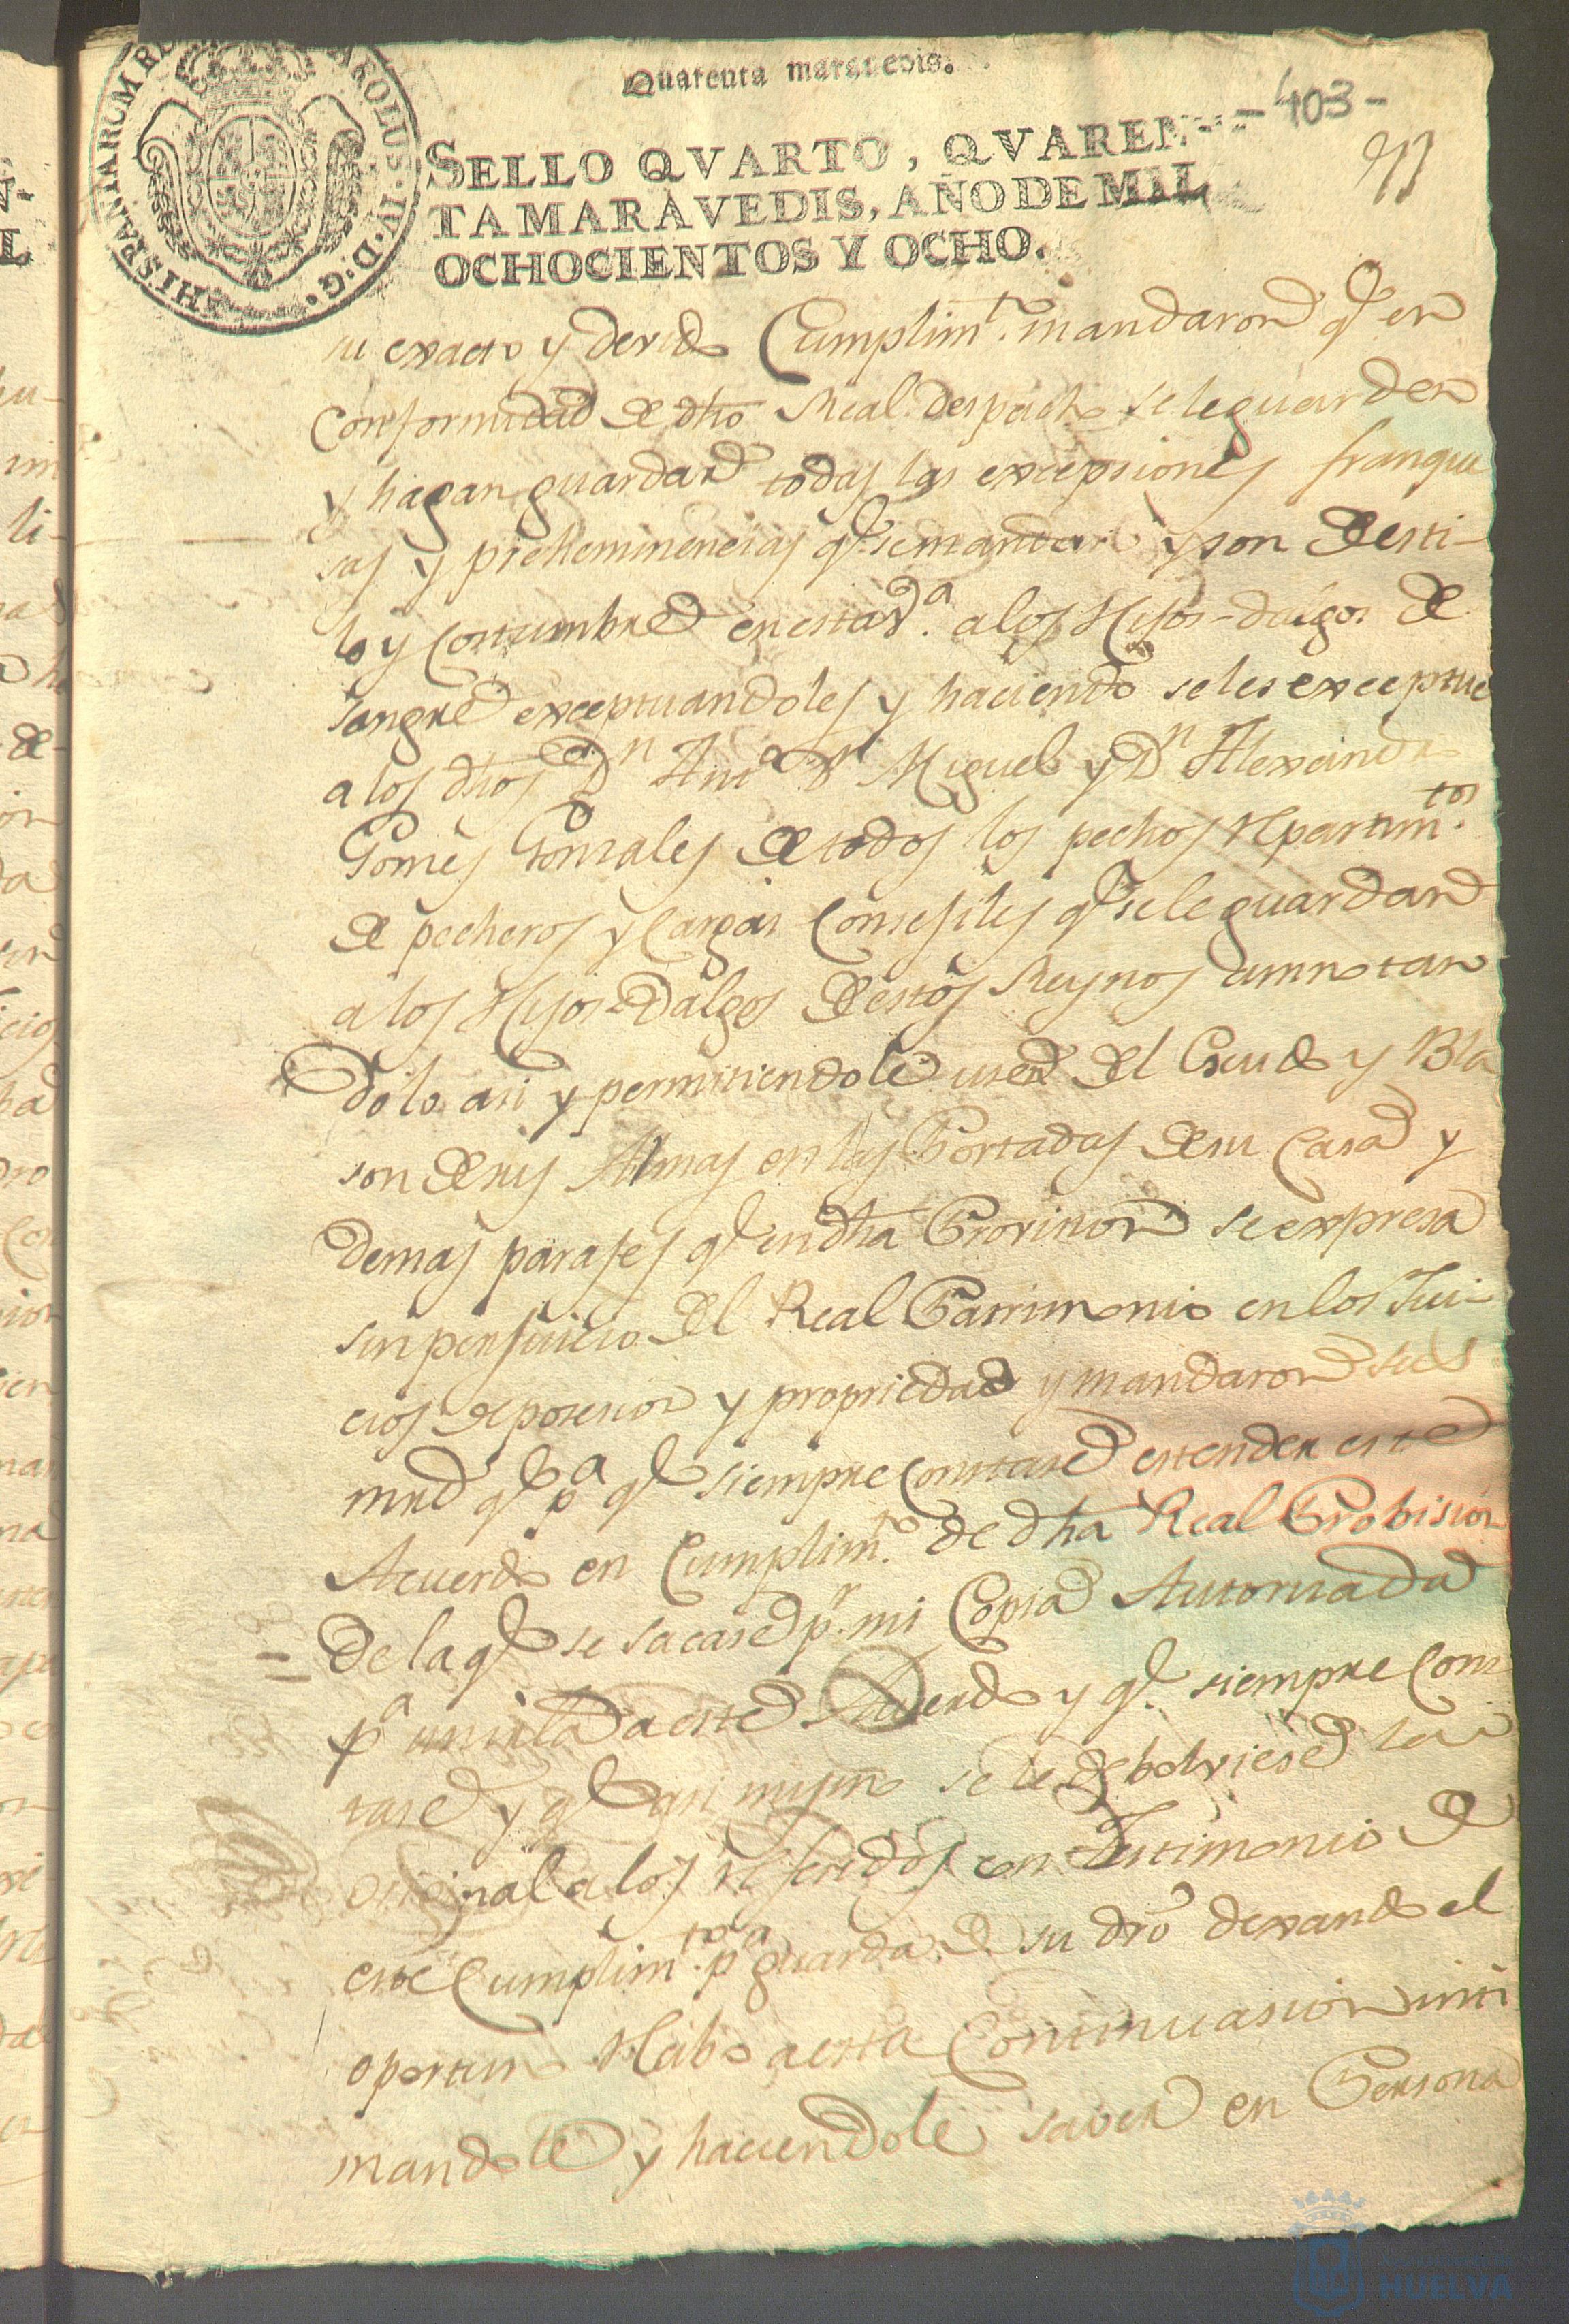 Quarenta maravedis.
HISPANIARUM RE CAROLUS·IV·D·G·
-403-
SELLO QVARTO, QVAREN-
TA MARAVEDIS, AÑO DE MIL
OCHOCIENTOS Y OCHO.
su exacto y devido Cumplimto. mandaron q.e en
Conformidad de dho Real despacho se le guarden
y hagan guardar todas las excepsiones franque
sas y preheminencias q.e se mandan y son de esti-
lo y Costumbre en esta V.a a los Hijos-dalgos de
sangre exceptuandoles y haciendo se les exceptue
a los dhos Dn Anto Dn Miguel y Dn Alexandro
Gomes Gonsales de todos los pechos repartimtos.
de pecheros y Cargas Consejiles q.e se le guardan
a los Hijos-Dalgos de estos Reynos annotan
dolo asi y permitiendole usen del Escudo y Bla
son de sus Armas en las Portadas de su Casa y
demas parajes q.e en dha Provision se expresa
sin perjuicio del Real Patrimonio en los Jui-
cios de posesion y propriedad y mandaron sus
mrd q.e pa q.e siempre Constase estender este
Acuerdo en Cumplimto. de dha Real Probision
= De la q.e se sacase pr. mi Copia Autorisada
pa unirla a este Acuerdo y q.e siempre Cons
tase y q.e asi mismo se le debolviese la
original a los referidos con Testimonio de
este Cumplimto. pa guarda de su dro dexando el
oportuno Recibo a esta Continuasion inti
mandole y haciendole saver en Persona
HUELVA